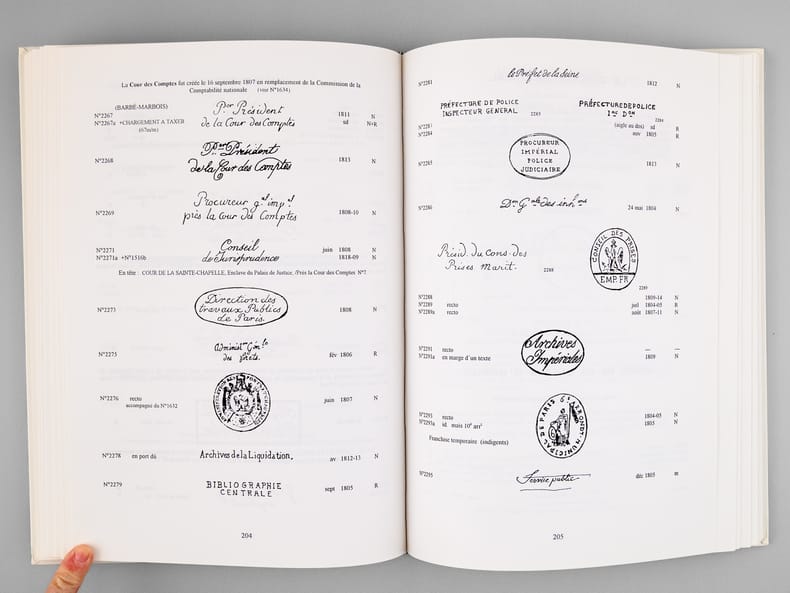 La Cour des Comptes fut créée le 16 septembre 1807 en remplacement de la Commission de la
Comptabilité nationale (voir N°1634)
(BARBÉ-MARBOIS)
N°2267
N°2267a +CHARGEMENT A TAXER
(67m/m)
Pier Président
de la Cour des Comptes
1811 N
sd N+R
N°2268
Pier Président
de la Cour des Comptes
1813 N
N°2269
Procureur gal impal
près la Cour des Comptes
1808-10 N
N°2271
N°2271a +N°1516b
Conseil
de Jurisprudence
juin 1808 N
1818-09 N
En tête : COUR DE LA SAINTE-CHAPELLE, Enclave du Palais de Justice, /Près la Cour des Comptes N°7
N°2273
Direction des
travaux Publics
de Paris.
1808 N
N°2275
des forets.
fév 1806 R
N°2276 recto
accompagné du N°1632
juin 1807 N
N°2278 en port dû
Archives de la Liquidation.
av 1812-13 N
N°2279
BIBLIOGRAPHIE
CENTRALE
sept 1805 R
204
N°2281
le Préfet de la Seine
1812 N
PRÉFECTURE DE POLICE
INSPECTEUR GENERAL
2283
PRÉFECTURE DE POLICE
1ere Don
2284
N°2283
(aigle au dos) sd R
N°2284
nov 1805 R
N°2285
PROCUREUR
IMPÉRIAL
POLICE
JUDICIAIRE
1813 N
N°2286
Don Gale des inhons
24 mai 1804 N
Présid. du Cons. des
Prises Marit.
2288
CONSEIL DES PRISES
EMP. FR
2289
N°2288
1809-14 N
N°2289 recto
juil 1804-05 R
N°2289a recto
août 1807-11 N
N°2291 recto
— —
N°2291a en marge d'un texte
Archives
Impériales
1809 N
N°2293 recto
1804-05 N
N°2293a id. mais 10e arrt
1805 N
Franchise temporaire (indigents)
MUNICIPAL DE PARIS 6e ARRONDT
N°2295
Service public
déc 1805 m
205